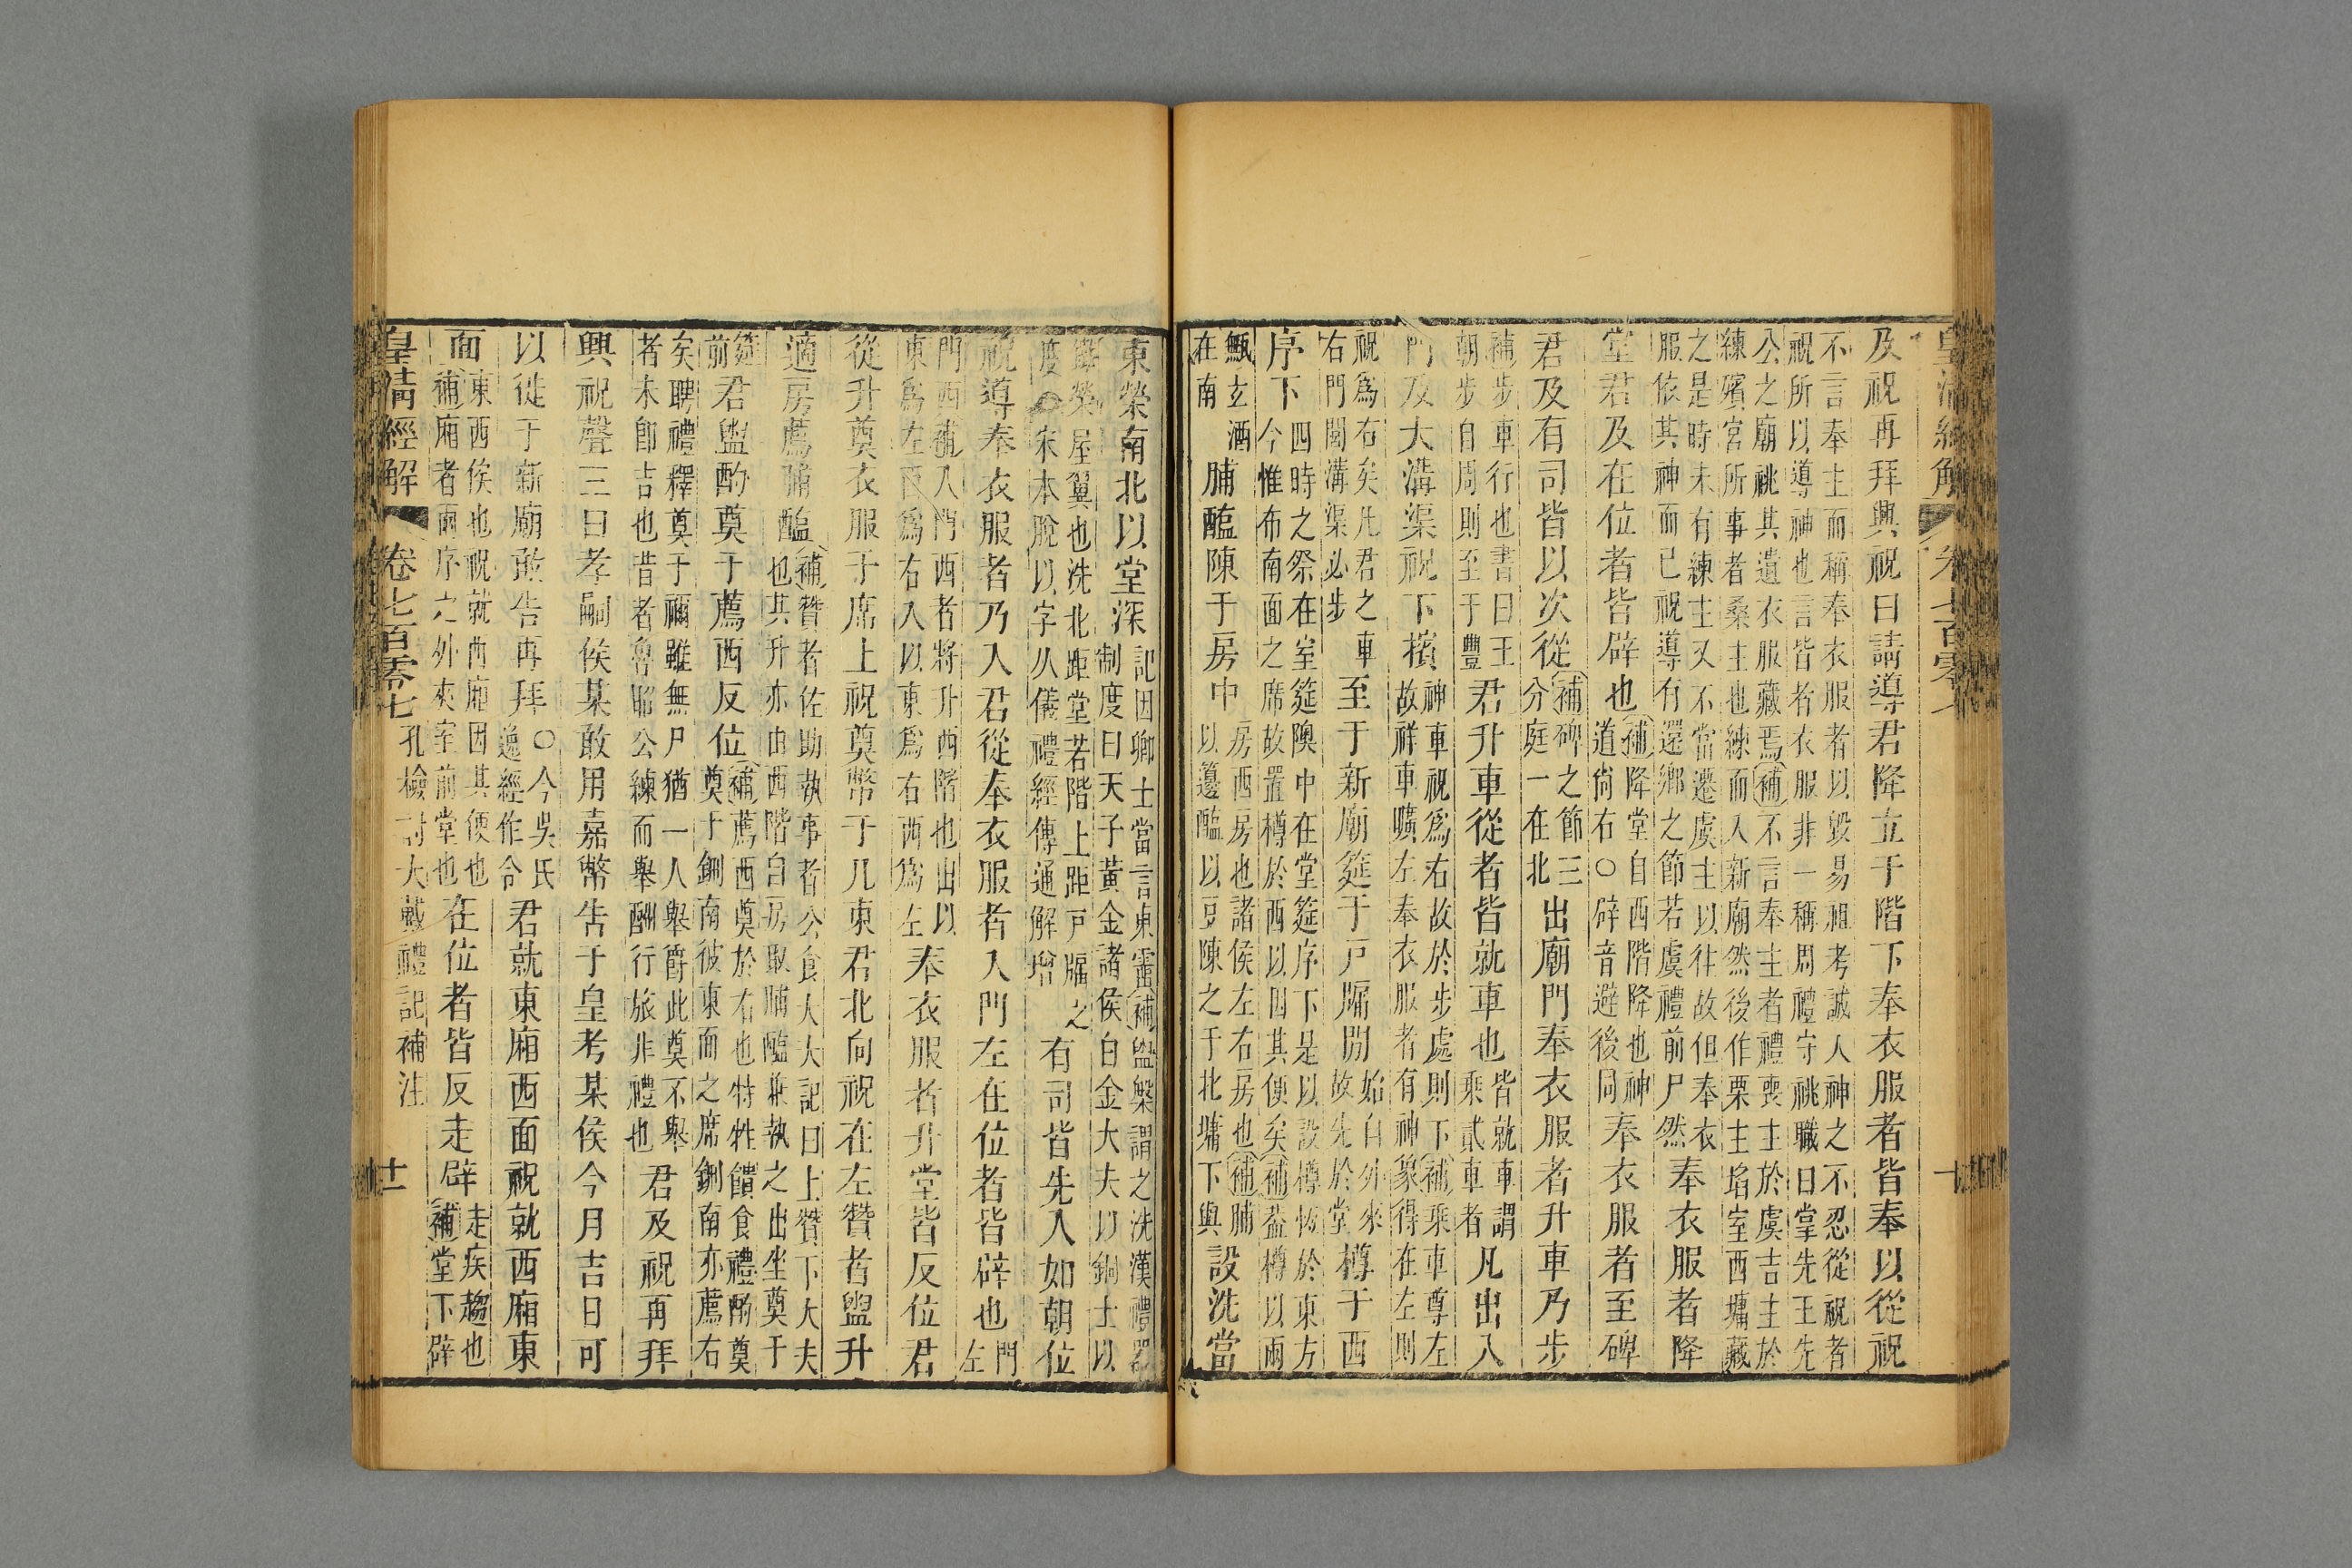 皇清經解 卷七百零七 十
及祝再拜興祝曰請導君降立于階下奉衣服者皆奉以從祝
不言奉主而稱奉衣服者以毀易祖考誠人神之不忍從祝者
祝所以導神也言皆者衣服非一稱周禮守祧職曰掌先王先
公之廟祧其遺衣服藏焉補不言奉主者禮喪主於虞吉主於
練殯宮所事者桑主也練而入新廟然後作栗主埳室西墉藏
之是時未有練主又不當遷虞主以往故但奉衣
服依其神而已祝導有還鄉之節若虞禮前尸然
奉衣服者降
堂君及在位者皆辟也
補降堂自西階降也神
道尚右○辟音避後同
奉衣服者至碑
君及有司皆以次從
補碑之節三
分庭一在北
出廟門奉衣服者升車乃步
補步車行也書曰王
朝步自周則至于豐
君升車從者皆就車也
皆就車謂
乘貳車者
凡出入
門及大溝渠祝下擯
神車祝爲右故於步處則下補乘車尊左
故祥車曠左奉衣服者有神象得在左則
祝爲右矣凡君之車
右門閭溝渠必步
至于新廟筵于戶牖間
始自外來
故先於堂
樽于西
序下
四時之祭在室筵隩中在堂筵序下是以設樽恆於東方
今惟布南面之席故置樽於西以因其便矣補葢樽以兩
甒玄酒
在南
脯醢陳于房中
房西房也諸侯左右房也補脯
以籩醢以豆陳之于北墉下與
設洗當
東榮南北以堂深
記因卿士當言東霤補盥槃謂之洗漢禮器
制度曰天子黃金諸侯白金大夫以銅士以
鐵榮屋翼也洗北距堂若階上距戶牖之
度○宋本脫以字从儀禮經傳通解增
有司皆先入如朝位
祝導奉衣服者乃入君從奉衣服者入門左在位者皆辟也
門
左
門西補入門西者將升西階也出以
東爲左西爲右入以東爲右西爲左
奉衣服者升堂皆反位君
從升奠衣服于席上祝奠幣于几東君北向祝在左贊者盥升
適房薦脯醢
補贊者佐助執事者公食大夫記曰上贊下大夫
也其升亦由西階自房取脯醢兼執之出坐奠于
筵
前
君盥酌奠于薦西反位
補薦西奠於右也特牲饋食禮酳奠
奠于鉶南彼東面之席鉶南亦薦右
矣聘禮釋奠于禰雖無尸猶一人舉爵此奠不舉
者未卽吉也昔者魯昭公練而舉酬行旅非禮也
君及祝再拜
興祝聲三曰孝嗣侯某敢用嘉幣告于皇考某侯今月吉日可
以徙于新廟敢告再拜
○今吳氏
逸經作令
君就東廂西面祝就西廂東
面
東西俟也祝就西廂因其便也
補廂者兩序之外夾室前堂也
在位者皆反走辟
走疾趨也
補堂下辟
皇清經解 卷七百零七 孔檢討大戴禮記補注 十一